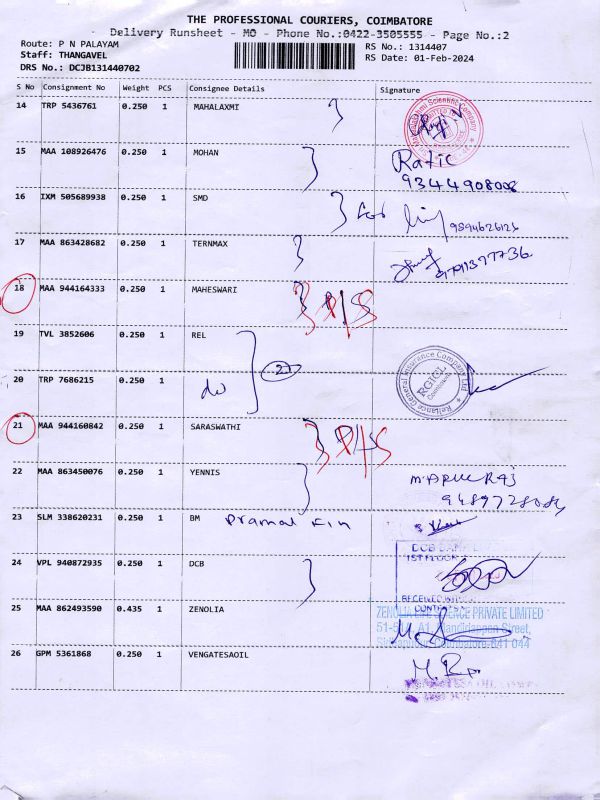 THE PROFESSIONAL COURIERS, COIMBATORE
Delivery Runsheet - MO - Phone No.:0422-3505555 - Page No.:2
Route: P N PALAYAM
Staff: THANGAVEL
DRS No.: DCJB131440702
RS No.: 1314407
RS Date: 01-Feb-2024
S No Consignment No Weight PCS Consignee Details Signature
14 TRP 5436761 0.250 1 MAHALAXMI
15 MAA 108926476 0.250 1 MOHAN
9344908008
16 IXM 505689938 0.250 1 SMD
9894626126
17 MAA 863428682 0.250 1 TERNMAX
9791377736
18 MAA 944164333 0.250 1 MAHESWARI P/S
19 TVL 3852606 0.250 1 REL
27
20 TRP 7686215 0.250 1
RGICL
Coimbatore
Reliance General Insurance Company Ltd
21 MAA 944160842 0.250 1 SARASWATHI P/S
22 MAA 863450076 0.250 1 YENNIS
23 SLM 338620231 0.250 1 BM Pramal Fin
24 VPL 940872935 0.250 1 DCB
DCB BANK
1ST FLOOR
25 MAA 862493590 0.435 1 ZENOLIA
ZENOLIA LIFE SCIENCE PRIVATE LIMITED
Coimbatore-641 044
26 GPM 5361868 0.250 1 VENGATESAOIL